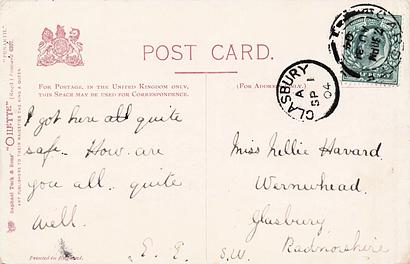 POST CARD.
FOR POSTAGE, IN THE UNITED KINGDOM ONLY,
THIS SPACE MAY BE USED FOR CORRESPONDENCE.
(FOR ADDRESS ONLY.)
Raphael Tuck & Sons' "OILETTE"
ART PUBLISHERS TO THEIR MAJESTIES THE KING & QUEEN.
GLASBURY
A
SP 1
04
I got here all quite
safe. How are
you all. quite
well.
E. E.
Miss Nellie Havard.
Wernwhead.
Glasbury
Radnorshire
S.W.
Printed in England.